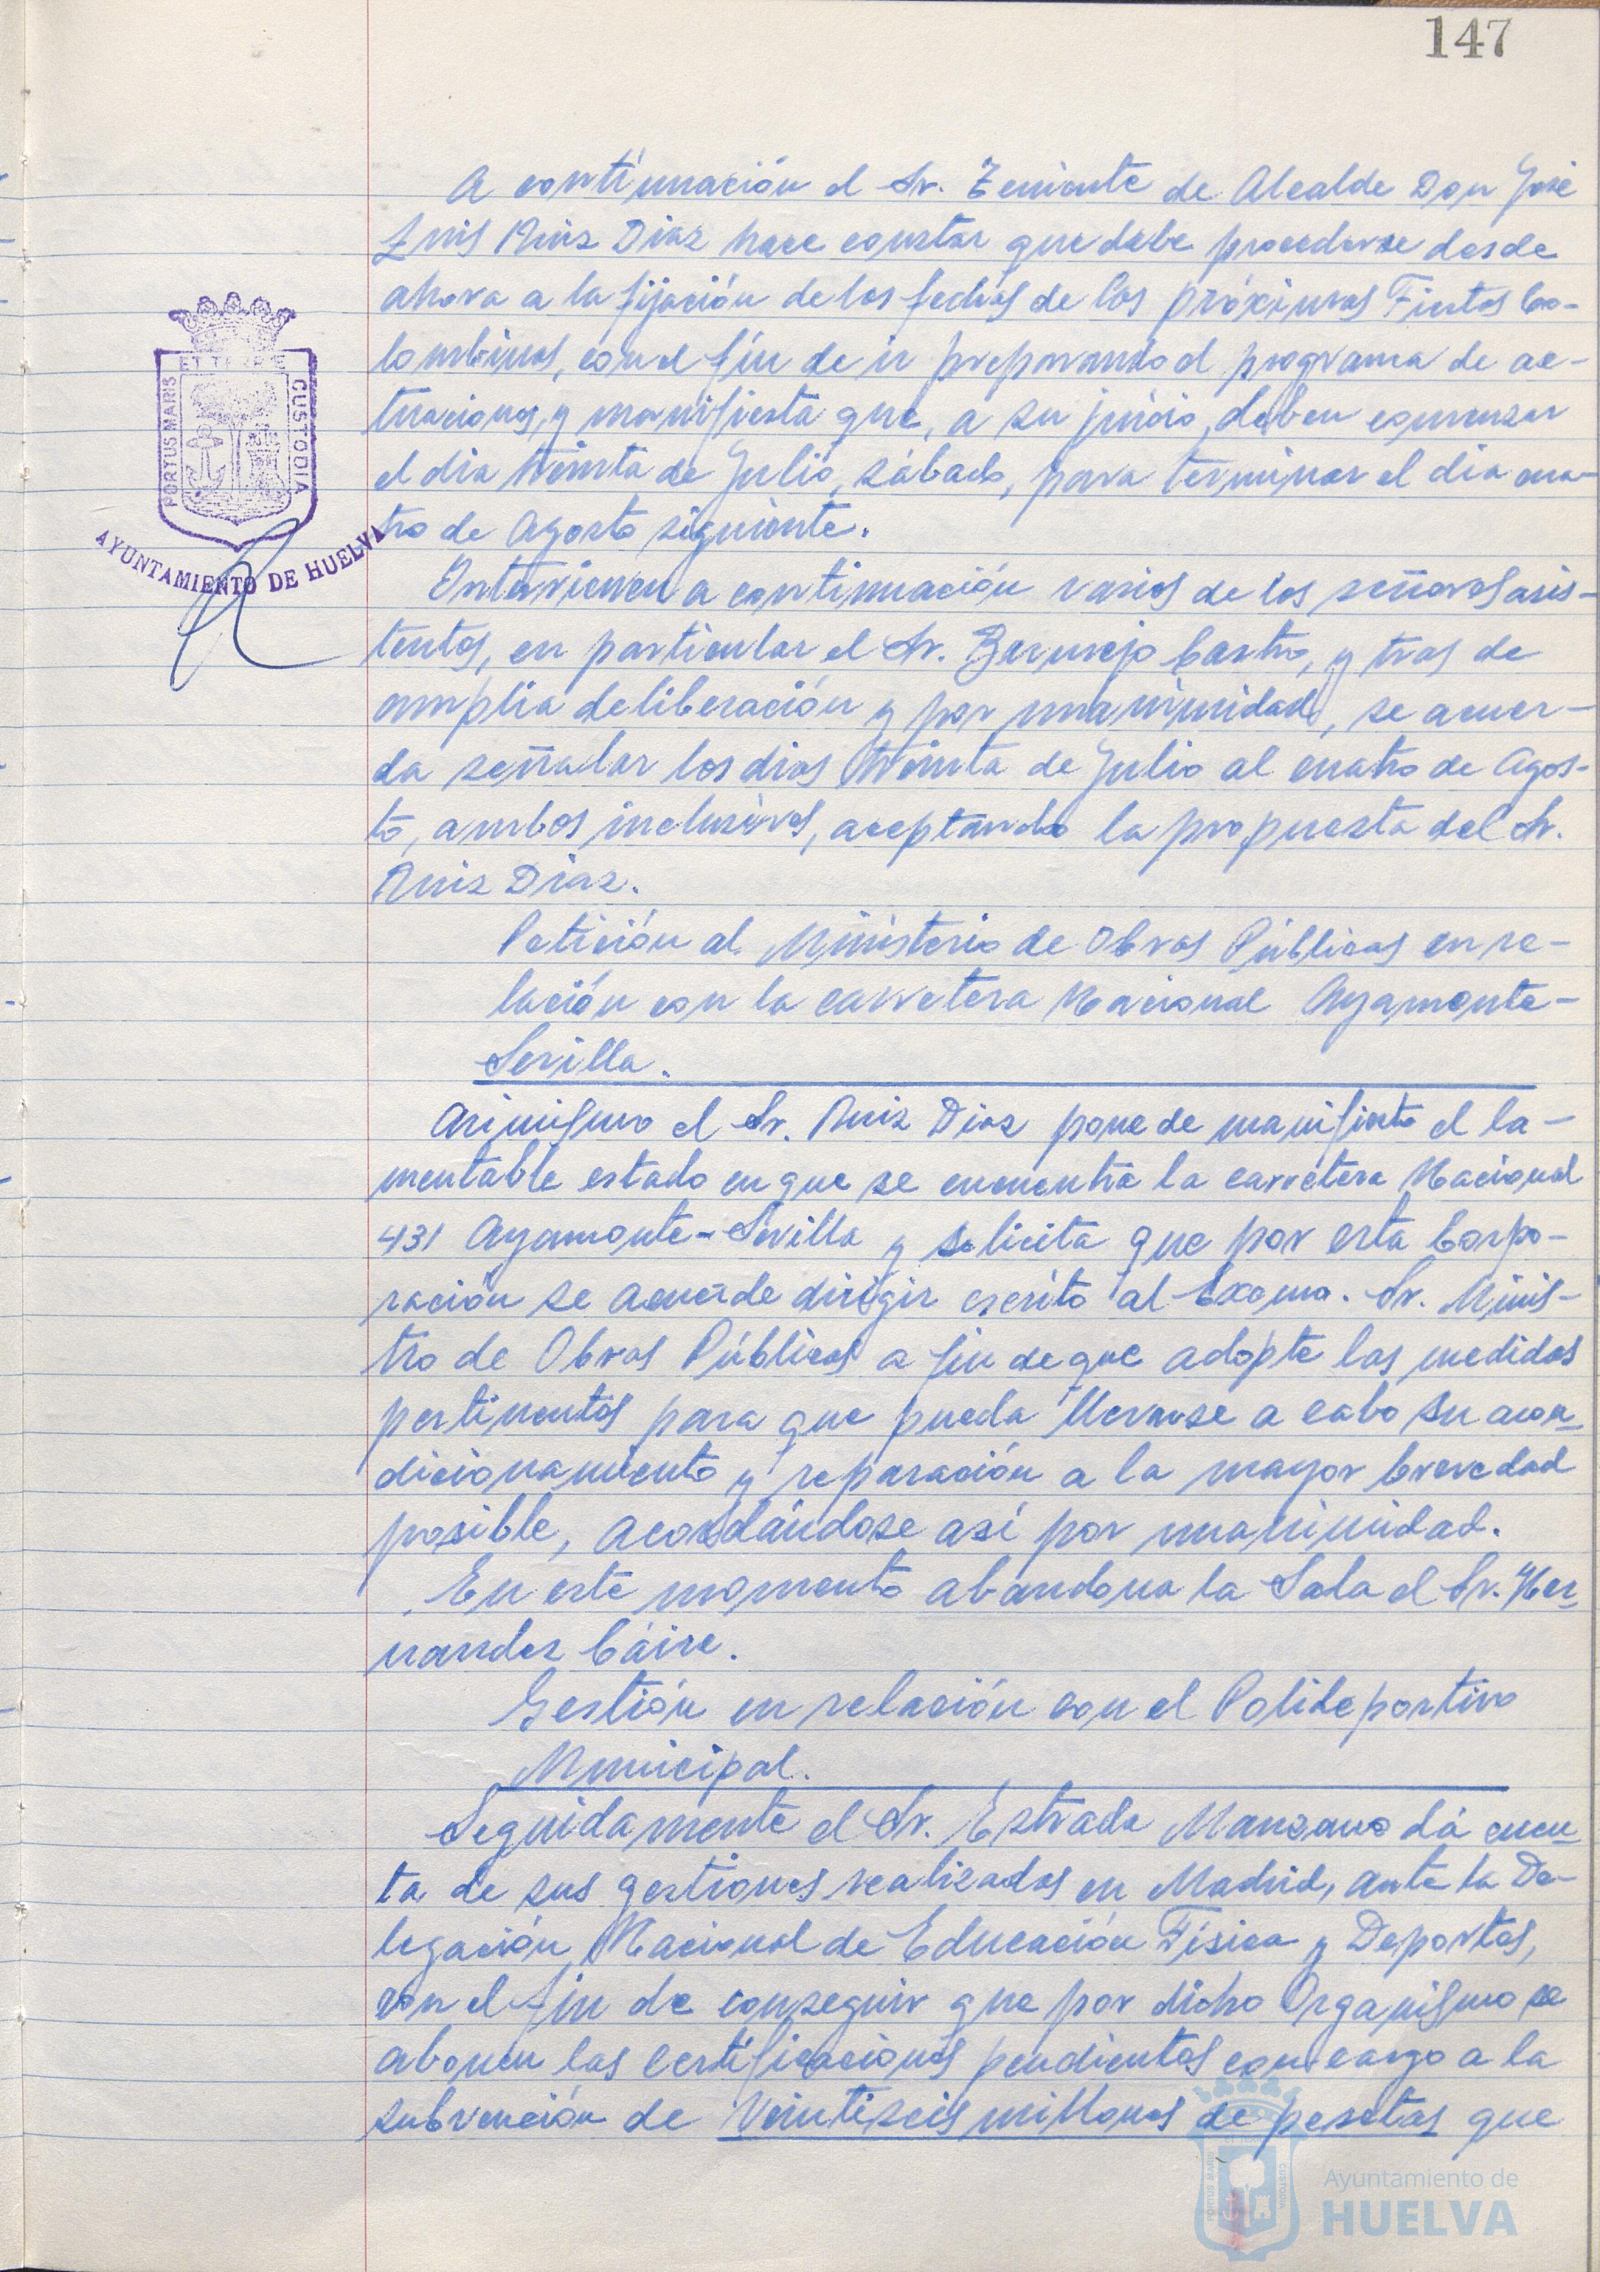 147
A continuación el Sr. Teniente de Alcalde Don José
Luis Ruiz Diaz hace constar que debe procederse desde
ahora a la fijación de las fechas de las próximas Fiestas Co-
lombinas, con el fin de ir preparando el programa de ac-
tuaciones, y manifiesta que, a su juicio, deben comenzar
el dia treinta de Julio, sábado, para terminar el dia cua-
tro de Agosto siguiente.
ET TERRE
PORTUS MARIS
CUSTODIA
AYUNTAMIENTO DE HUELVA
Intervienen a continuación varios de los señores asis-
tentes, en particular el Sr. Bermejo Castro, y tras de
amplia deliberación y por unanimidad, se acuer-
da señalar los dias treinta de Julio al cuatro de Agos-
to, ambos inclusives, aceptando la propuesta del Sr.
Ruiz Diaz.
Petición al Ministerio de Obras Públicas en re-
lación con la carretera Nacional Ayamonte-
Sevilla.
Asimismo el Sr. Ruiz Diaz pone de manifiesto el la-
mentable estado en que se encuentra la carretera Nacional
431 Ayamonte-Sevilla y solicita que por esta Corpo-
ración se acuerde dirigir escrito al Excmo. Sr. Minis-
tro de Obras Públicas a fin de que adopte las medidas
pertinentes para que pueda llevarse a cabo su acon-
dicionamiento y reparación a la mayor brevedad
posible, acordándose así por unanimidad.
En este momento abandona la Sala el Sr. Her-
nandez Cáire.
Gestión en relación con el Polideportivo
Municipal.
Seguidamente el Sr. Estrada Manzano dá cuen-
ta de sus gestiones realizadas en Madrid, ante la De-
legación Nacional de Educación Física y Deportes,
con el fin de conseguir que por dicho Organismo se
abonen las certificaciones pendientes con cargo a la
subvención de Veintiseis millones de pesetas que
Ayuntamiento de
HUELVA